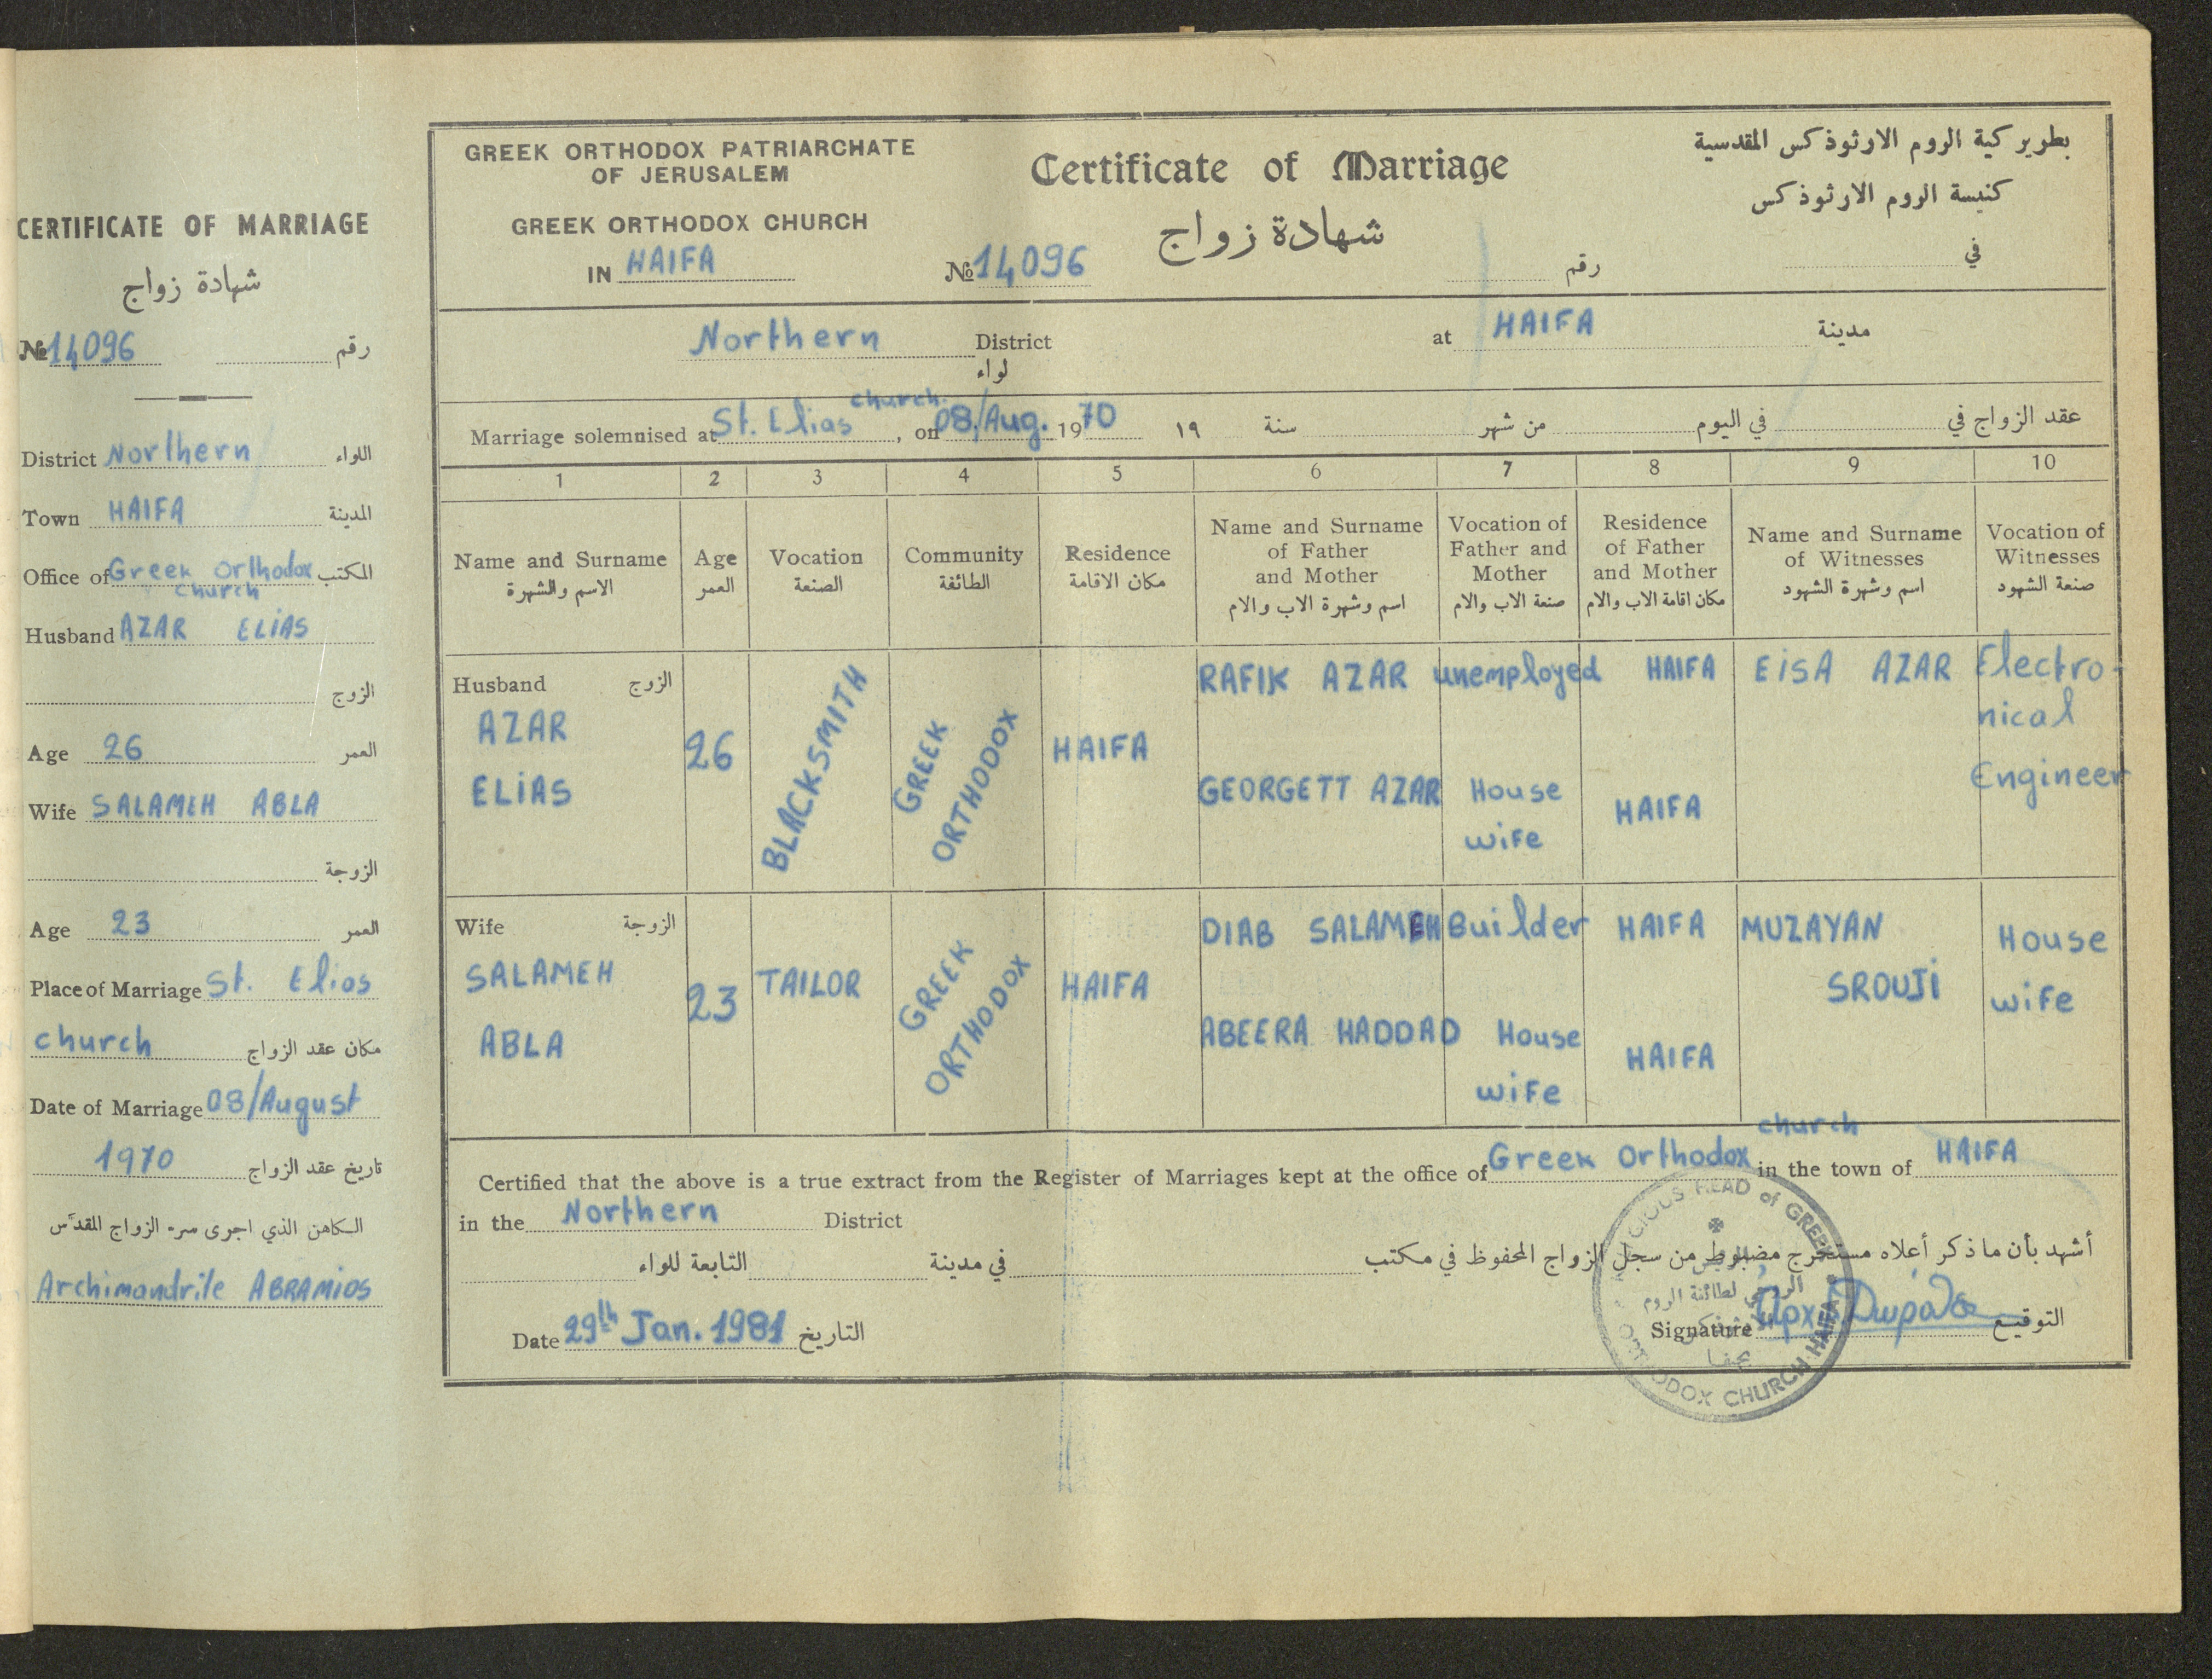 CERTIFICATE OF MARRIAGE
شهادة زواج
№ 14096 رقم
District Northern اللواء
Town HAIFA المدينة
Office of Greek Orthodox المكتب
church
Husband AZAR ELIAS
الزوج
Age 26 العمر
Wife SALAMEH ABLA
الزوجة
Age 23 العمر
Place of Marriage St. Elios
church مكان عقد الزواج
Date of Marriage 08/August
1970 تاريخ عقد الزواج
الكاهن الذي اجرى سر الزواج المقدّس
Archimandrite ABRAMIOS
GREEK ORTHODOX PATRIARCHATE
OF JERUSALEM
GREEK ORTHODOX CHURCH
IN HAIFA
Certificate of Marriage
شهادة زواج
№ 14096 رقم
بطرير كية الروم الارثوذكس المقدسية
كنيسة الروم الارثوذكس
في
Northern District at HAIFA مدينة
لواء
church
Marriage solemnised at St. Elias, on 08/Aug. 1970 عقد الزواج في في اليوم من شهر سنة ١٩
1 2 3 4 5 6 7 8 9 10
Name and Surname
الاسم والشهرة
Age
العمر
Vocation
الصنعة
Community
الطائفة
Residence
مكان الاقامة
Name and Surname
of Father
and Mother
اسم وشهرة الاب والام
Vocation of
Father and
Mother
صنعة الاب والام
Residence
of Father
and Mother
مكان اقامة الاب والام
Name and Surname
of Witnesses
اسم وشهرة الشهود
Vocation of
Witnesses
صنعة الشهود
Husband الزوج
AZAR
ELIAS
26
BLACKSMITH
GREEK
ORTHODOX
HAIFA
RAFIK AZAR
GEORGETT AZAR
unemployed
House
wife
HAIFA
HAIFA
EISA AZAR
Electro-
nical
Engineer
Wife الزوجة
SALAMEH
ABLA
23
TAILOR
GREEK
ORTHODOX
HAIFA
DIAB SALAMEH
ABEERA HADDAD
Builder
House
wife
HAIFA
HAIFA
MUZAYAN
SROUJI
House
wife
church
Certified that the above is a true extract from the Register of Marriages kept at the office of Greek Orthodox in the town of HAIFA
in the Northern District
أشهد بأن ما ذكر أعلاه مستخرج مضبوط من سجل الزواج المحفوظ في مكتب في مدينة التابعة للواء
Date 29th Jan. 1981 التاريخ
Signature التوقيع
HEAD of GREEK
ORTHODOX CHURCH HAIFA
لطائفة الروم
بحيفا